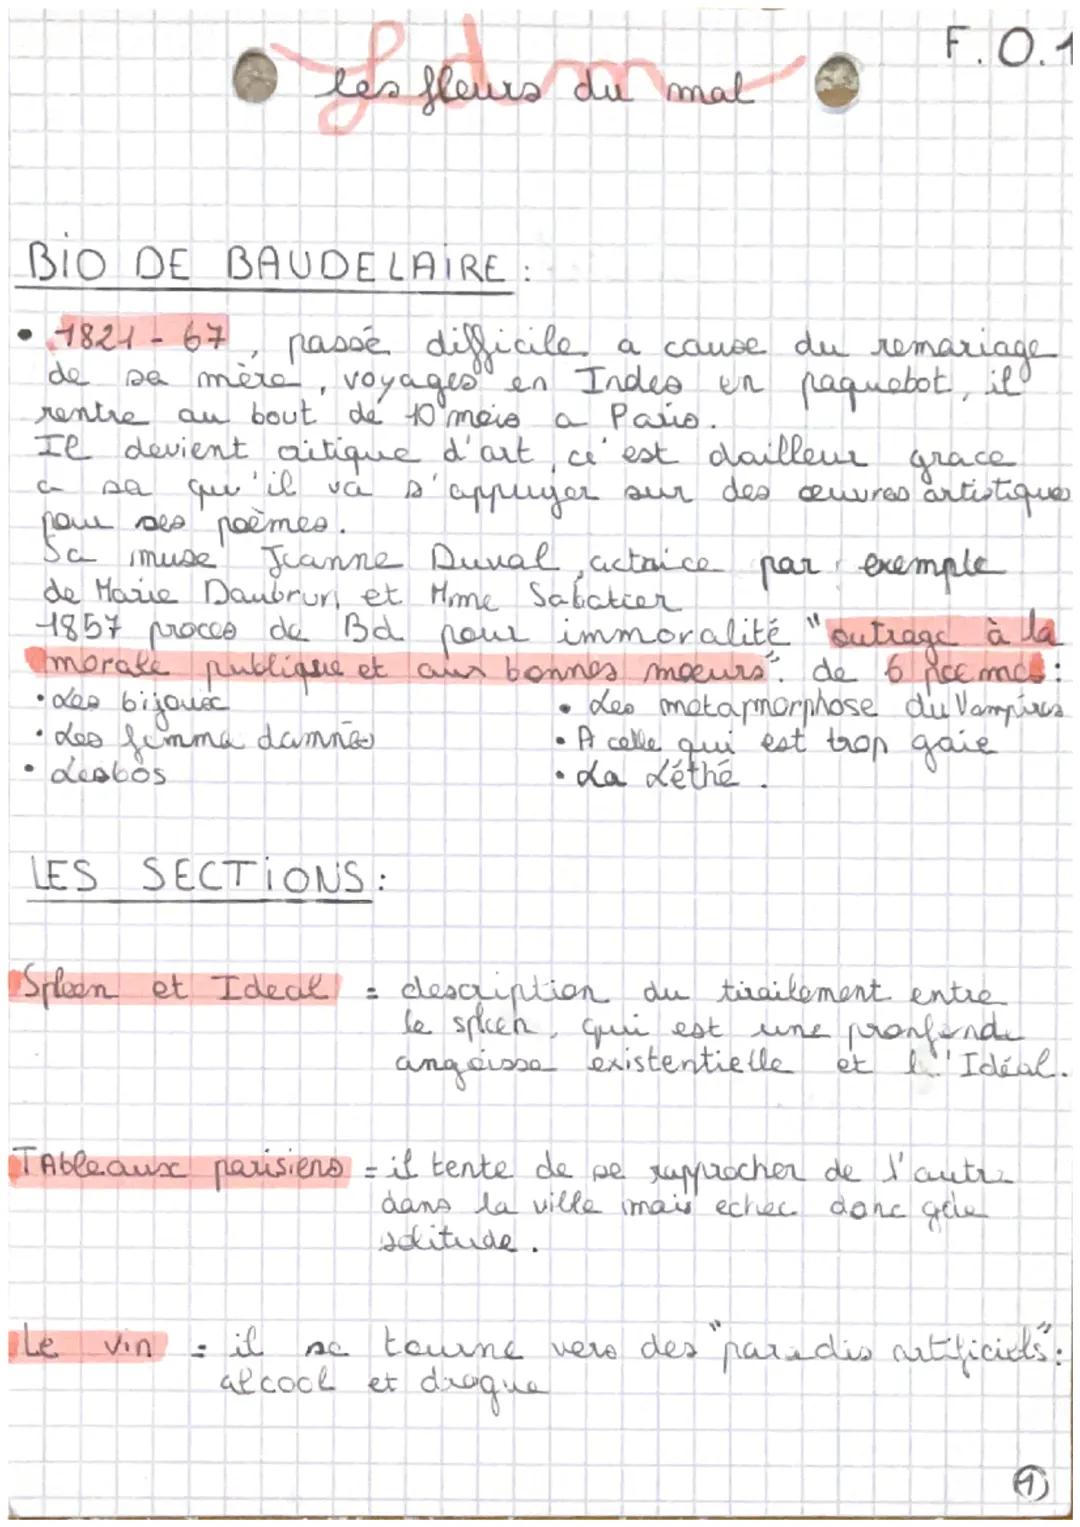 F.O.1
Fdm
les fleurs du mal
BIO DE BAUDELAIRE :
• 1821 - 67, passé difficile a cause du remariage
de sa mère, voyages en Indes en paquebot, il
rentre au bout de 10 mois a Paris.
Il devient critique d'art, c'est dailleur grace
a sa qu'il va s'appuyer sur des œuvres artistiques
pour ses poèmes.
Sa muse Jeanne Duval, actrice par exemple
de Marie Daubrun et Mme Sabatier
1857 procès de Bd pour immoralité "outrage à la
morale publique et aux bonnes mœurs". de 6 poemes :
• Les bijoux
• Les metapmorphose du Vampires
• Les femma damnés
• A celle qui est trop gaie
• Lesbos
• La Léthé.
LES SECTIONS :
Spleen et Ideal = description du tirailement entre
le spleen, qui est une pronfonde
angoisse existentielle et l'Idéal.
TAbleaux parisiens = il tente de se rapprocher de l'autre
dans la ville mais echec donc gde
solitude.
Le vin = il se tourne vers des "paradis artificiels" :
alcool et drogue
1